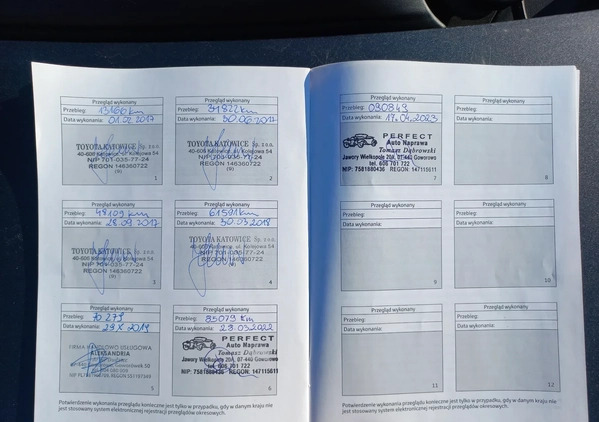 Przegląd wykonany
Przebieg: 15466 km
Data wykonania: 01.02.2017
TOYOTA KATOWICE Sp. z o.o.
40-606 Katowice, ul. Kolejowa 54
NIP 701-035-77-24
REGON 146360722
(9)
1
Przegląd wykonany
Przebieg: 31822 km
Data wykonania: 30.06.2017
TOYOTA KATOWICE Sp. z o.o.
40-606 Katowice, ul. Kolejowa 54
NIP 701-035-77-24
REGON 146360722
(9)
2
Przegląd wykonany
Przebieg: 48109 km
Data wykonania: 28.09.2017
TOYOTA KATOWICE Sp. z o.o.
40-606 Katowice, ul. Kolejowa 54
NIP 701-035-77-24
REGON 146360722
3
Przegląd wykonany
Przebieg: 61591 km
Data wykonania: 30.03.2018
TOYOTA KATOWICE Sp. z o.o.
40-606 Katowice, ul. Kolejowa 54
NIP 701-035-77-24
REGON 146360722
4
Przegląd wykonany
Przebieg: 70 279
Data wykonania: 29 X 2019
FIRMA HANDLOWO USŁUGOWA
ALEKSANDRIA
5
Przegląd wykonany
Przebieg: 85079 km
Data wykonania: 28.03.2022
PERFECT
Auto Naprawa
Tomasz Dąbrowski
Jawory Wielkopole 20A, 07-440 Goworowo
tel. 606 701 722
NIP: 7581880436 REGON: 147115611
6
Potwierdzenie wykonania przeglądu konieczne jest tylko w przypadku, gdy w danym kraju nie
jest stosowany system elektronicznej rejestracji przeglądów okresowych.
Przegląd wykonany
Przebieg: 090849
Data wykonania: 17.04.2023
PERFECT
Auto Naprawa
Tomasz Dąbrowski
Jawory Wielkopole 20A, 07-440 Goworowo
tel. 606 701 722
NIP: 7581880436 REGON: 147115611
7
Przegląd wykonany
Przebieg:
Data wykonania:
8
Przegląd wykonany
Przebieg:
Data wykonania:
9
Przegląd wykonany
Przebieg:
Data wykonania:
10
Przegląd wykonany
Przebieg:
Data wykonania:
11
Przegląd wykonany
Przebieg:
Data wykonania:
12
Potwierdzenie wykonania przeglądu konieczne jest tylko w przypadku, gdy w danym kraju nie
jest stosowany system elektronicznej rejestracji przeglądów okresowych.